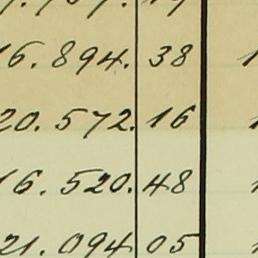 16.894. 38
20.572. 16
16.520. 48
21.094 05